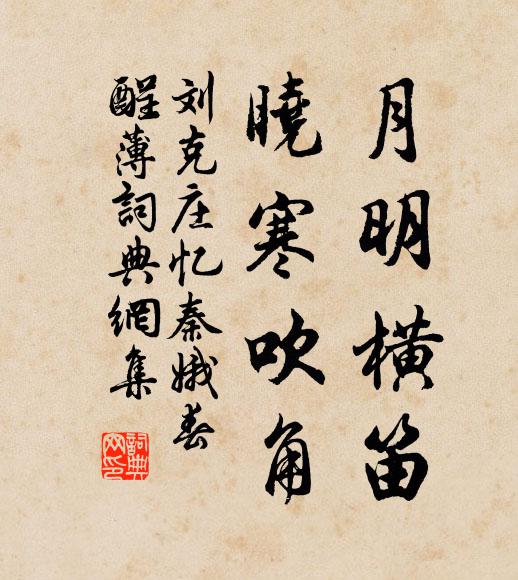 月明橫笛
曉寒吹角
刘克庄忆秦娥春
酲薄詞典網集
詞典网印